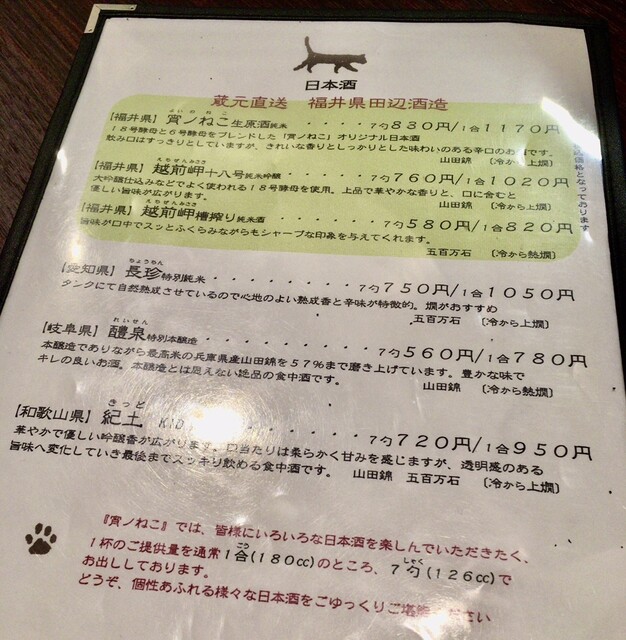 日本酒
蔵元直送 福井県田辺酒造
よいのねこ
【福井県】 宵ノねこ生原酒純米 ・・・・ 7勺830円/1合1170円
18号酵母と6号酵母をブレンドした「宵ノねこ」オリジナル日本酒
飲み口はすっきりとしていますが、きれいな香りとしっかりとした味わいのある辛口のお酒です。
山田錦 〔冷から上燗〕
えちぜんみさき
【福井県】 越前岬十八号純米吟醸 ・・・・ 7勺760円/1合1020円
大吟醸仕込みなどでよく使われる18号酵母を使用。上品で華やかな香りと、口に含むと
優しい旨味が広がります。 山田錦 〔冷から上燗〕
えちぜんみさき
【福井県】 越前岬槽搾り純米酒 ・・・・・・・ 7勺580円/1合820円
旨味が口中でスッとふくらみながらもシャープな印象を与えてくれます。
五百万石 〔冷から熱燗〕
価格となっております
ちょうちん
【愛知県】 長珍特別純米 ・・・・・・・・ 7勺750円/1合1050円
タンクにて自然熟成させているので心地のよい熟成香と辛味が特徴的。燗がおすすめ
五百万石 〔冷から上燗〕
れいせん
【岐阜県】 醴泉特別本醸造 ・・・・・・・・ 7勺560円/1合780円
本醸造でありながら最高米の兵庫県産山田錦を57%まで磨き上げています。豊かな味で
キレの良いお酒。本醸造とは思えない絶品の食中酒です。 山田錦 〔冷から熱燗〕
きっど
【和歌山県】 紀土 KID ・・・・・ 7勺720円/1合950円
華やかで優しい吟醸香が広がります。口当たりは柔らかく甘みを感じますが、透明感のある
旨味へ変化していき最後までスッキリ飲める食中酒です。 山田錦 五百万石 〔冷から上燗〕
『宵ノねこ』では、皆様にいろいろな日本酒を楽しんでいただきたく、
ごう しゃく
1杯のご提供量を通常1合(180cc)のところ、7勺(126cc)で
お出ししております。
どうぞ、個性あふれる様々な日本酒をごゆっくりご堪能ください